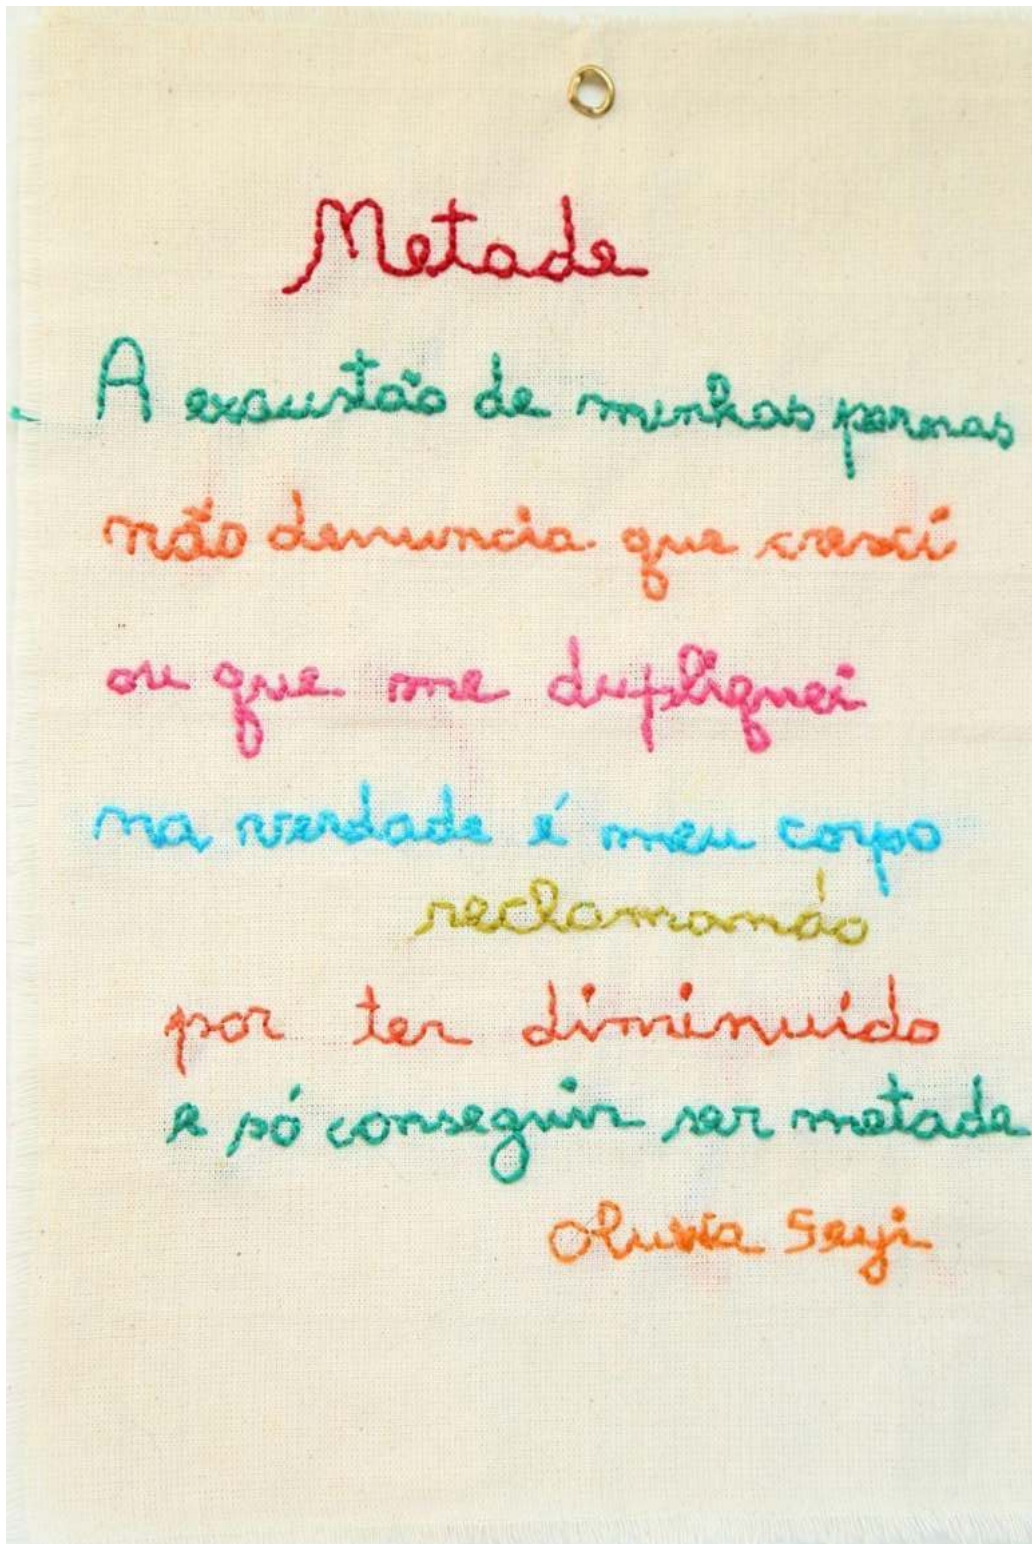 Metade
A exaustão de minhas pernas
não denuncia que cresci
ou que me dupliquei
na verdade é meu corpo
reclamando
por ter diminuído
e só conseguir ser metade
Oluwa Seyi